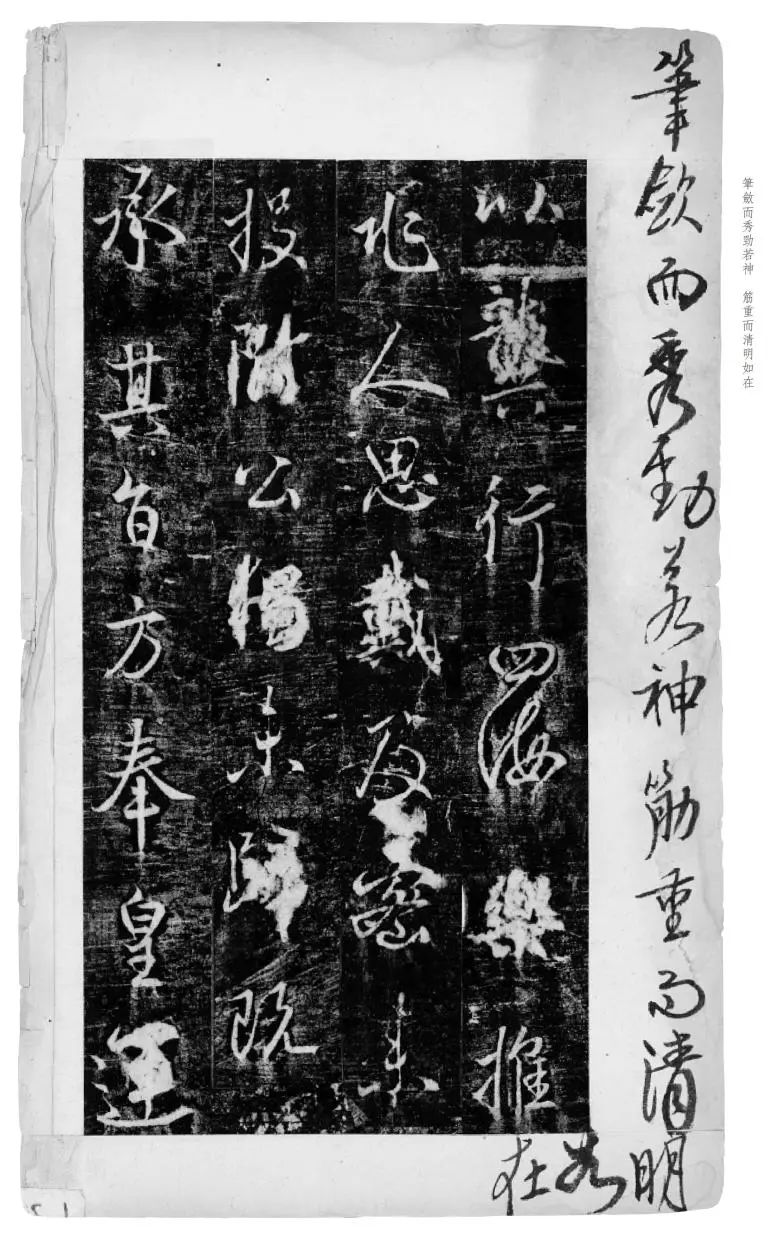 筆斂而秀勁若神　筋重而清明如在
筆歛而秀勁若神筋重而清明
如
在
以龔行四海樂推
兆人思戴密来
投附公獨未歸既
承其旨方奉皇運